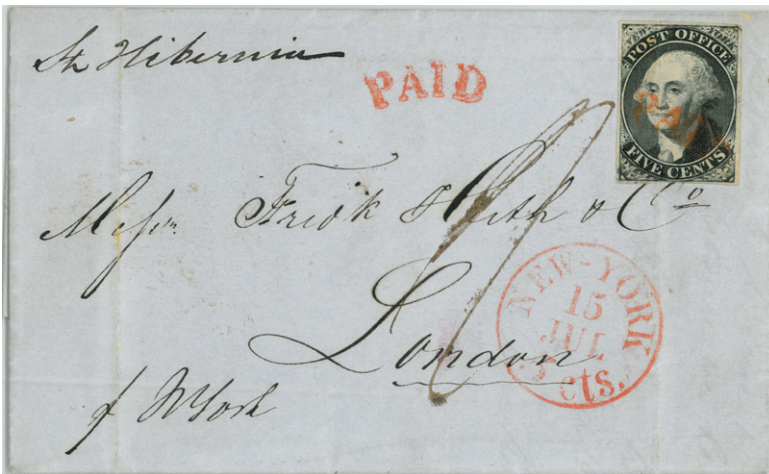 St Hibernia
PAID
POST OFFICE
FIVE CENTS
Messrs. Fredk Huth & Co
London
NEW-YORK
15
JUL
5 cts.
p N York